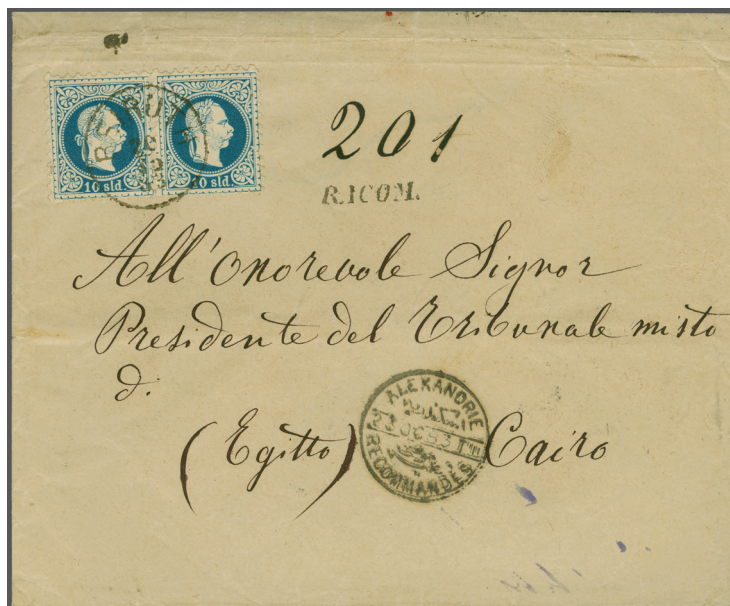 10 sld. 10 sld.
201
R.ICOM.
All'Onorevole Signor
Presidente del Tribunale misto
di
(Egitto) Cairo
ALEXANDRIE
RECOMMANDES